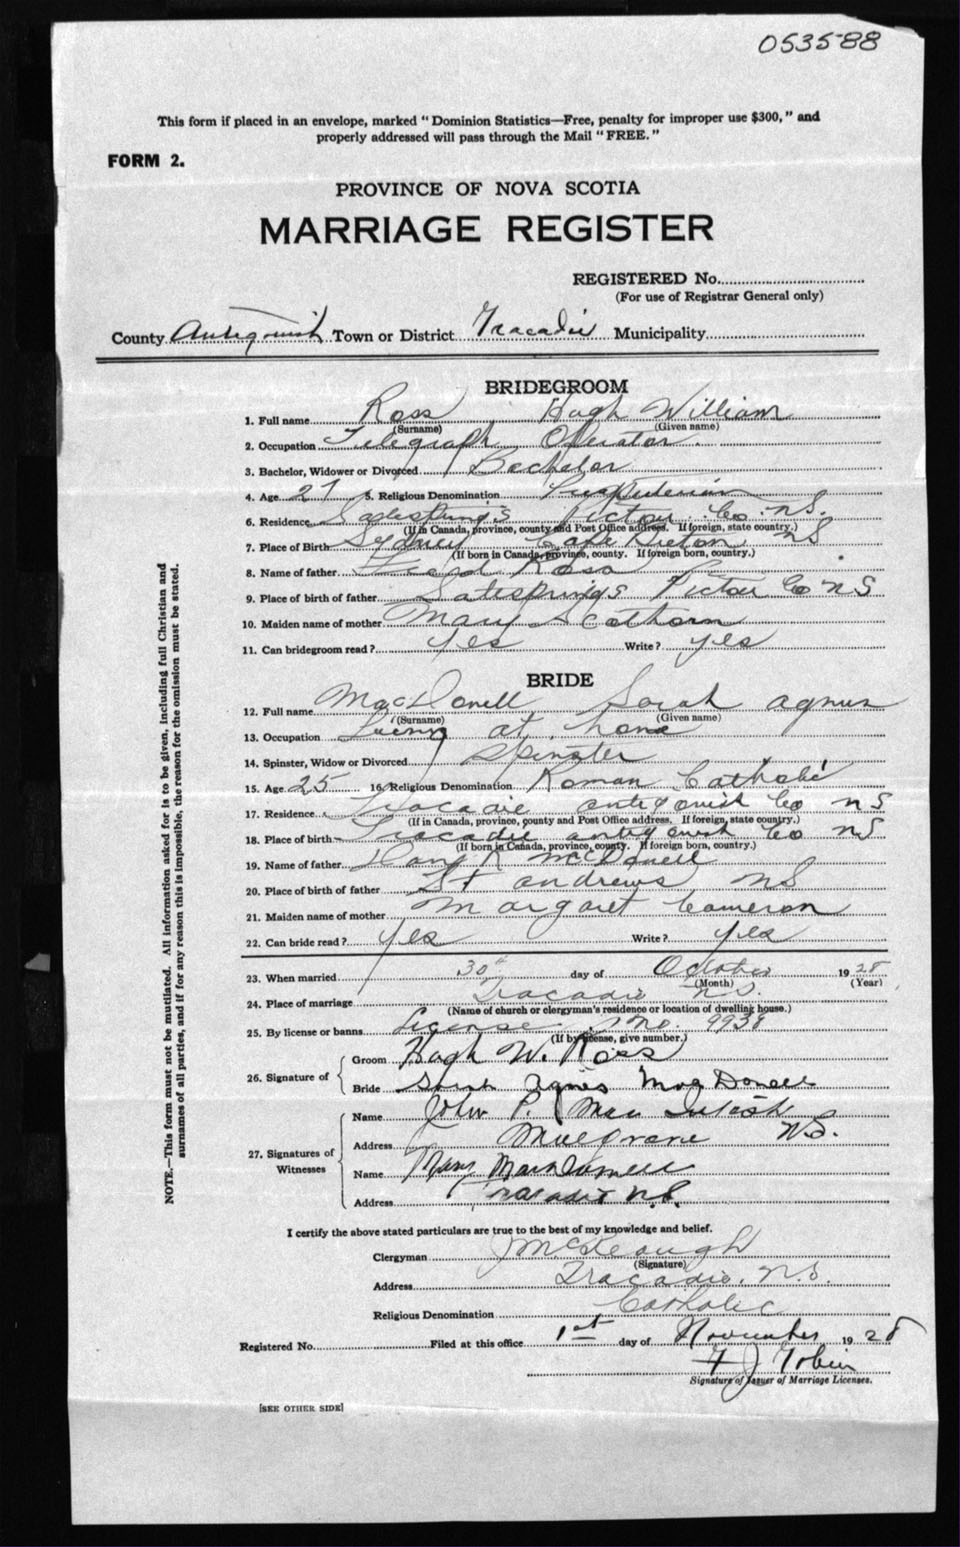 053588
This form if placed in an envelope, marked "Dominion Statistics—Free, penalty for improper use $300," and
properly addressed will pass through the Mail "FREE."
FORM 2.
PROVINCE OF NOVA SCOTIA
MARRIAGE REGISTER
REGISTERED No.
(For use of Registrar General only)
County Antigonish Town or District Tracadie Municipality
BRIDEGROOM
1. Full name Ross Hugh William
(Surname) (Given name)
2. Occupation Telegraph Operator
3. Bachelor, Widower or Divorced Bachelor
4. Age 27 5. Religious Denomination Presbyterian
6. Residence Saltsprings Pictou Co. N.S.
(If in Canada, province, county and Post Office address. If foreign, state country.)
7. Place of Birth Sydney Cape Breton NS
(If born in Canada, province, county. If foreign born, country.)
8. Name of father Ross
9. Place of birth of father Saltesprings Pictou Co NS
10. Maiden name of mother Mary
11. Can bridegroom read? Yes Write? Yes
BRIDE
12. Full name MacDonell Sarah Agnes
(Surname) (Given name)
13. Occupation Living at home
14. Spinster, Widow or Divorced Spinster
15. Age 25 16. Religious Denomination Roman Catholic
17. Residence Tracadie Antigonish Co NS
(If in Canada, province, county and Post Office address. If foreign, state country.)
18. Place of birth Tracadie Antigonish Co NS
(If born in Canada, province, county. If foreign born, country.)
19. Name of father McDonell
20. Place of birth of father St Andrews NS
21. Maiden name of mother Margaret Cameron
22. Can bride read? Yes Write? Yes
23. When married 30th day of October 1928
(Month) (Year)
24. Place of marriage Tracadie N.S.
(Name of church or clergyman's residence or location of dwelling house.)
25. By license or banns License No. 9938
(If by license, give number.)
26. Signature of
Groom Hugh W. Ross
Bride Sarah Agnes MacDonell
27. Signatures of Witnesses
Name John P. MacIntosh
Address Mulgrave N.S.
Name Mary MacDonell
Address Tracadie N.S.
I certify the above stated particulars are true to the best of my knowledge and belief.
Clergyman J McKeough
(Signature)
Address Tracadie, N.S.
Religious Denomination Catholic
Registered No. Filed at this office 1st day of November 1928
F J Tobin
Signature of Issuer of Marriage Licenses.
[SEE OTHER SIDE]
NOTE.—This form must not be mutilated. All information asked for is to be given, including full Christian and
surnames of all parties, and if for any reason this is impossible, the reason for the omission must be stated.